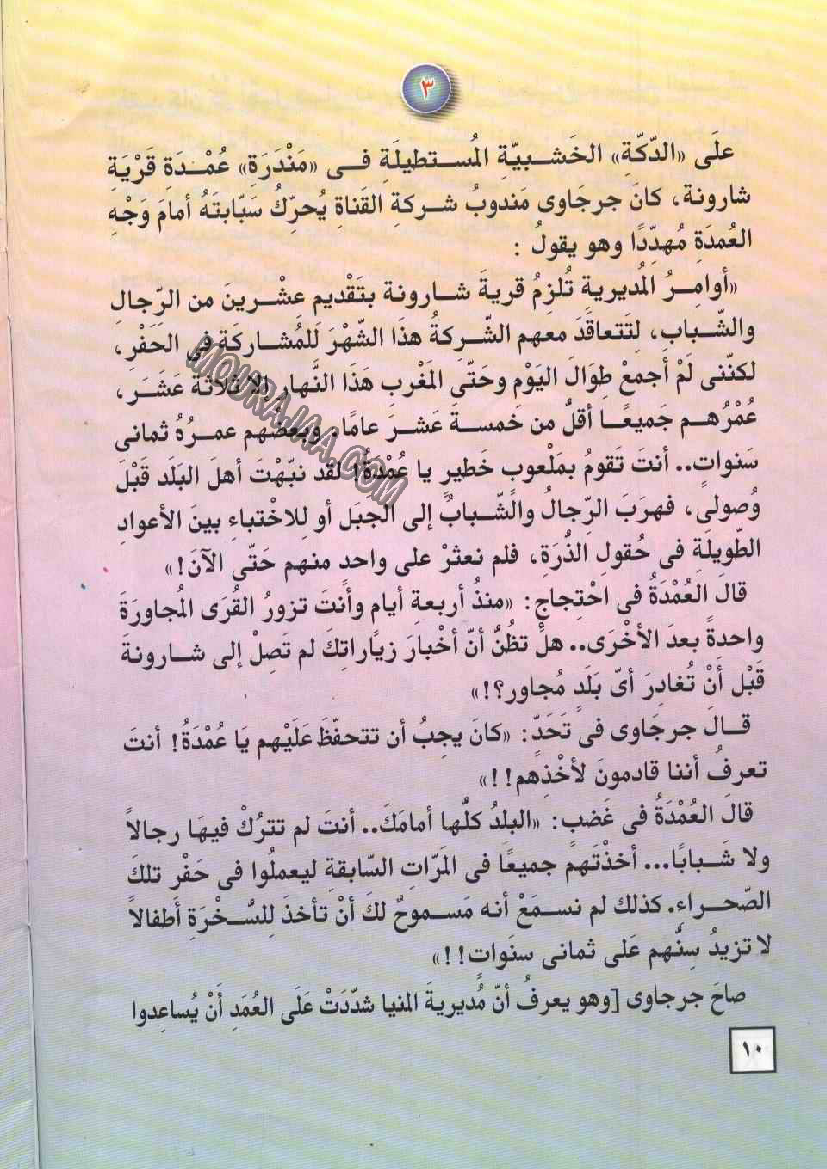 ٣
علَى «الدّكّةِ» الخَشَبيّةِ المُستطيلَةِ فى «مَنْدَرَةِ» عُمْدَةِ قَرْيَةِ
شارونة، كانَ جرجاوى مَندوبُ شركةِ القَناةِ يُحرّكُ سَبّابتَهُ أمامَ وَجْهِ
العُمدَةِ مُهدّدًا وهو يقولُ :
«أوامِرُ المُديرية تُلزِمُ قريةَ شارونة بتَقْديم عشْرينَ من الرّجالِ
والشّباب، لِتَتعاقَدَ معهم الشّركةُ هذا الشّهْرَ لَلمُشاركَةِ فى الحَفْرِ،
لكنّنى لَمْ أجمعْ طِوَالَ اليَوْم وحَتّى المَغْرب هَذا النَّهار إلا ثلاثَةَ عَشَرَ،
عُمْرُهم جَميعًا أقلُّ من خَمسةَ عَشرَ عامًا، وبعضُهم عمرُهُ ثمانى
سَنواتٍ.. أنتَ تَقومُ بمَلْعوبٍ خَطيرٍ يا عُمْدَةُ! لقد نبّهْتَ أهلَ البَلَد قَبْلَ
وُصولى، فهرَبَ الرّجالُ والشّبابُ إلى الجبَل أو لِلاخْتباءِ بينَ الأعواد
الطّويلَةِ فى حُقولِ الذُّرَةِ، فلم نعثرْ على واحدٍ منهم حَتّى الآنَ!»
قالَ العُمْدَةُ فى احْتِجاج: «منذُ أربعةِ أيام وأنتَ تزورُ القُرَى المُجاورَةَ
واحدةً بعدَ الأخْرَى.. هلْ تظُنُّ أنّ أخْبارَ زياراتِكَ لم تَصِلْ إلى شارونةَ
قَبْلَ أنْ تُغادِرَ أىّ بَلَدٍ مُجاور؟!»
قالَ جرجَاوى فى تَحَدّ: «كانَ يجِبُ أن تتحفّظَ عَلَيْهم يَا عُمْدَةُ! أنتَ
تعرفُ أننا قادمونَ لأخْذِهم!!»
قالَ العُمْدَةُ فى غَضب: «البلدُ كلُّها أمامَكَ.. أنتَ لم تترُكْ فيهَا رجالاً
ولا شَبابًا... أخذْتَهم جميعًا فى المَرّاتِ السّابقةِ ليعملُوا فى حَفْر تلكَ
الصّحراء. كذلك لم نسمَعْ أنه مَسموحٌ لكَ أنْ تأخذَ لِلسُّخْرَةِ أطفالاً
لا تزيدُ سِنُّهم عَلى ثمانى سنَواتٍ!!»
صاحَ جرجاوى [وهو يعرفُ أنّ مُديريةَ المنيا شدّدَتْ عَلَى العُمَدِ أنْ يُساعِدوا
١٠
MOURAJAA.COM